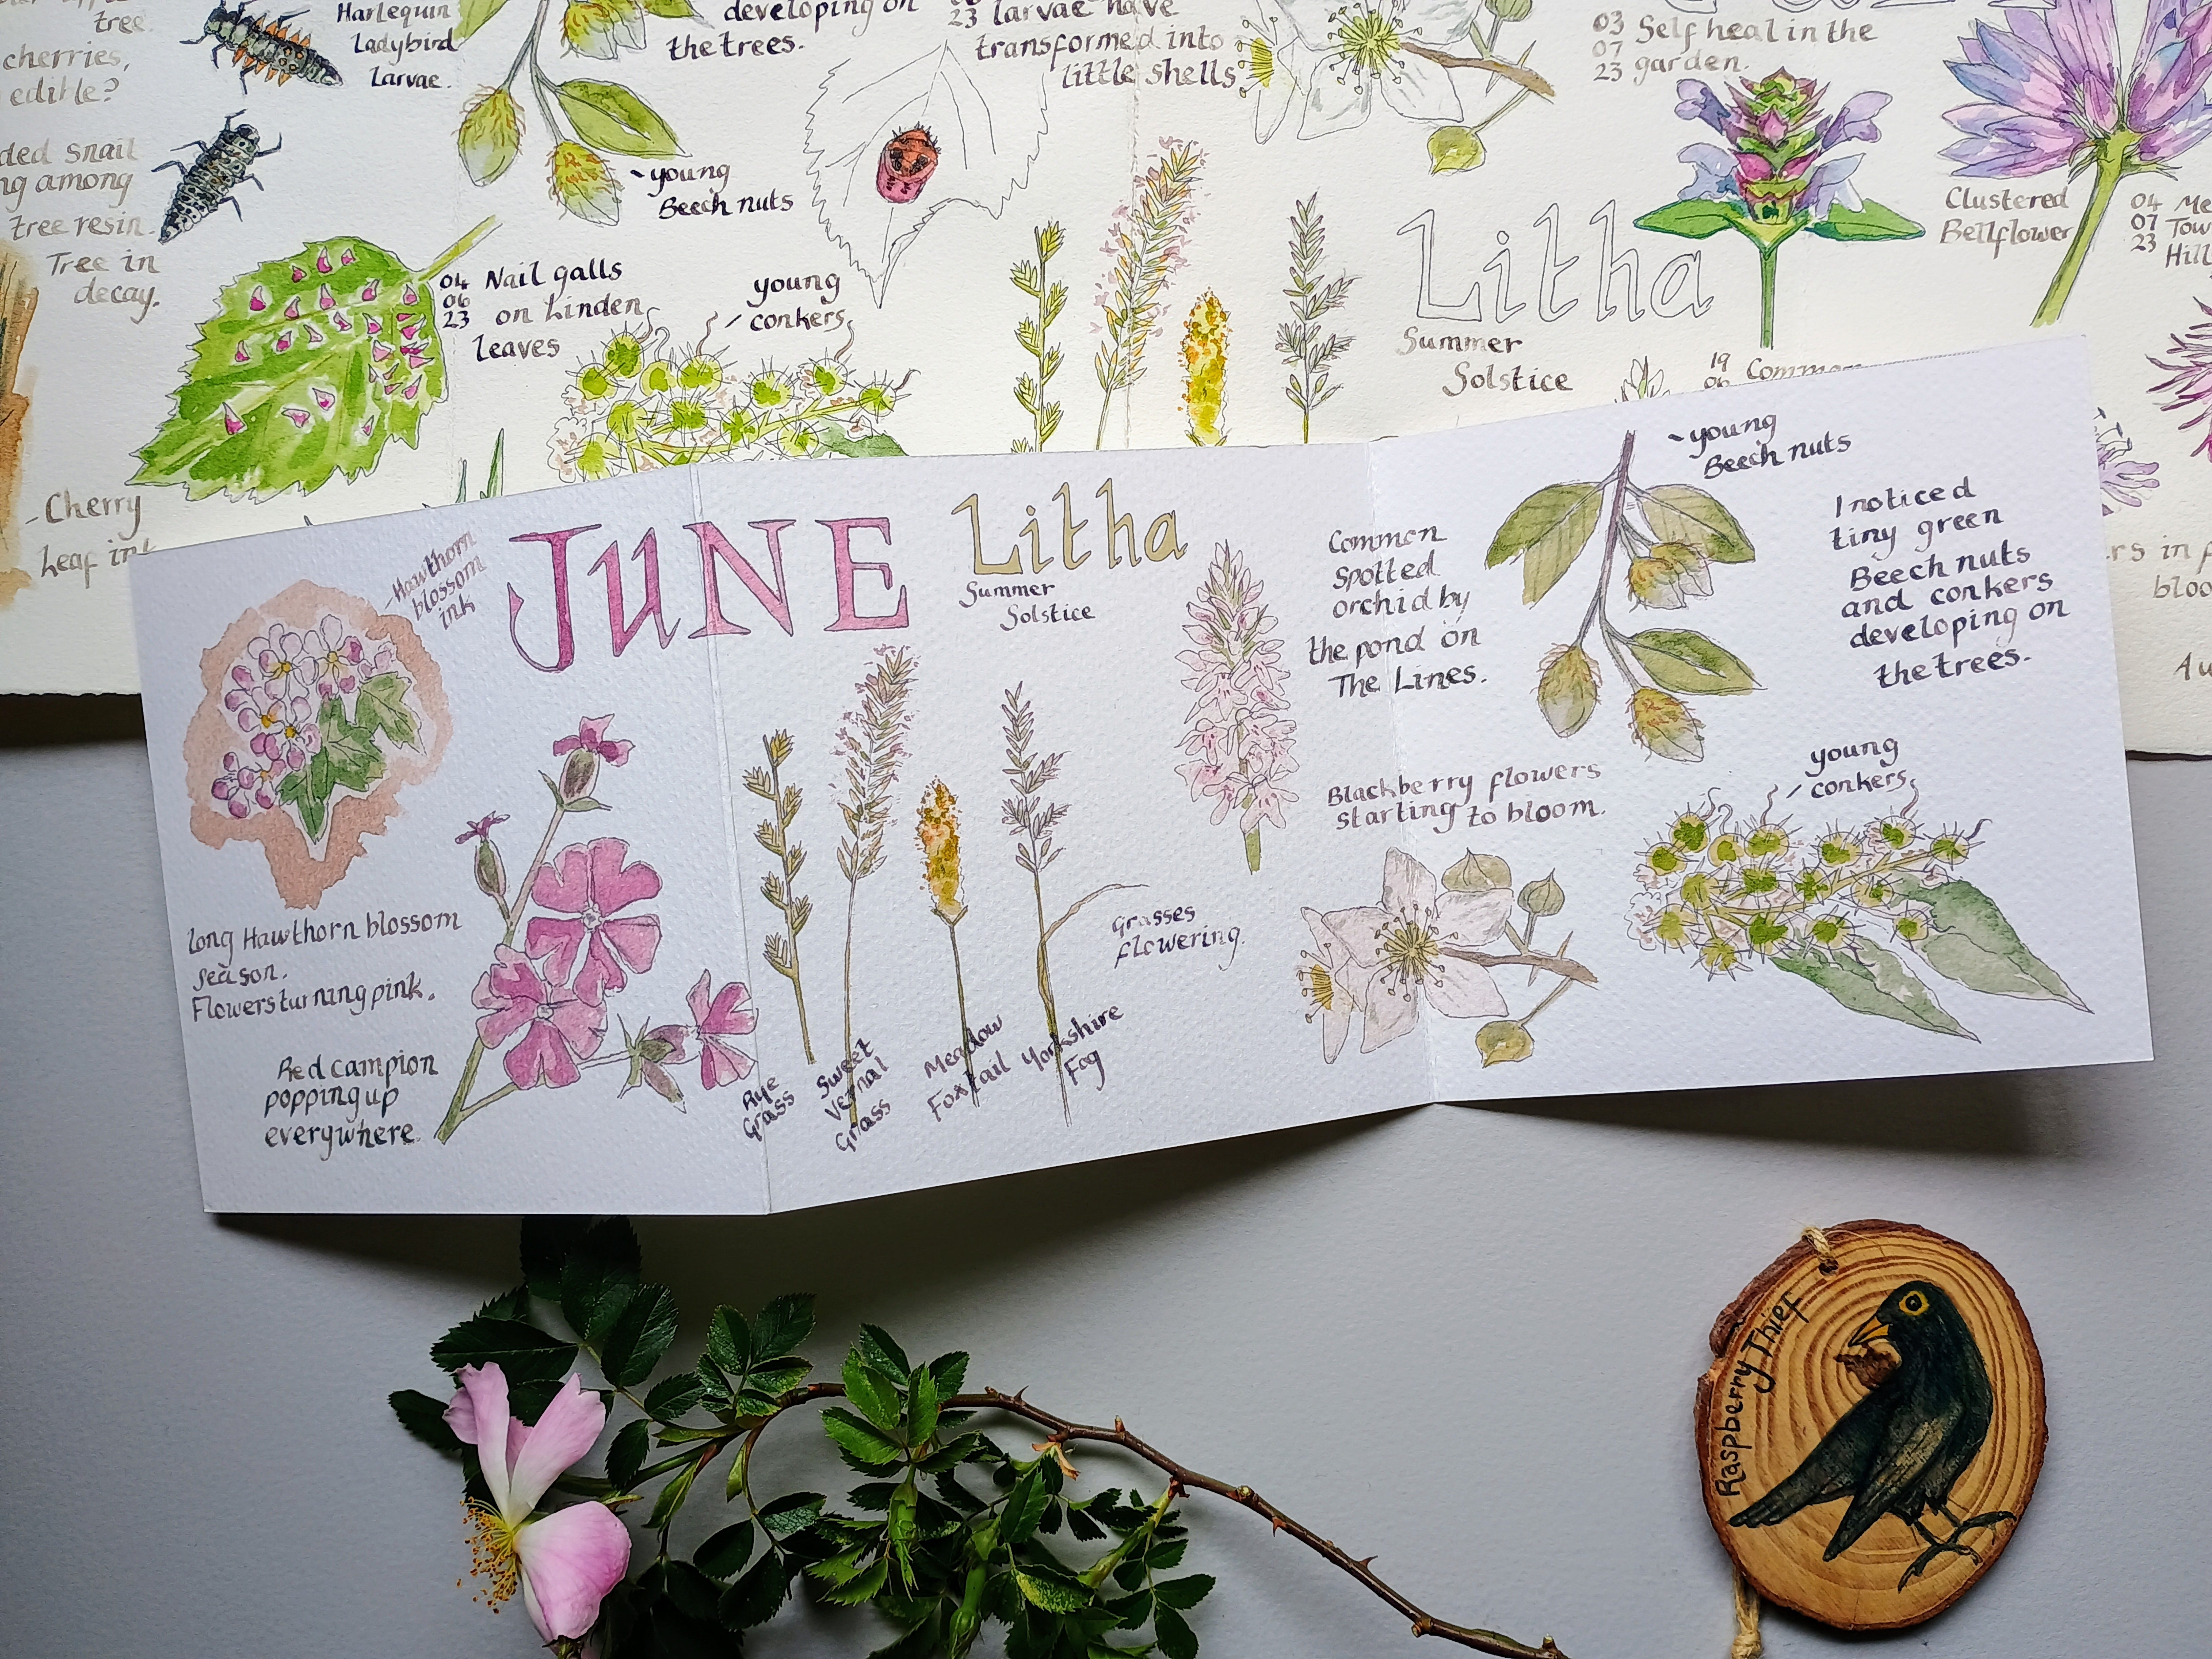 tree.
cherries,
edible?
snail
among
tree resin.
Tree in
decay.
Cherry
Leaf ink
Harlequin
Ladybird
Larvae.
developing on
the trees.
young
Beech nuts
23 larvae have
transformed into
little shells
04
06
23
Nail galls
on Linden
leaves
young
conkers
Litha
Summer
Solstice
03
07
23
Self heal in the
garden.
Clustered
Bellflower
04
07
23
19
06
Common
JUNE
Hawthorn
blossom
ink
Long Hawthorn blossom
season.
Flowers turning pink.
Red campion
popping up
everywhere.
Litha
Summer
Solstice
Rye
Grass
Sweet
Vernal
Grass
Meadow
Foxtail
Yorkshire
Fog
Grasses
flowering.
Common
Spotted
orchid by
the pond on
The Lines.
Blackberry flowers
starting to bloom.
young
Beech nuts
I noticed
tiny green
Beech nuts
and conkers
developing on
the trees.
young
conkers
Raspberry Thief